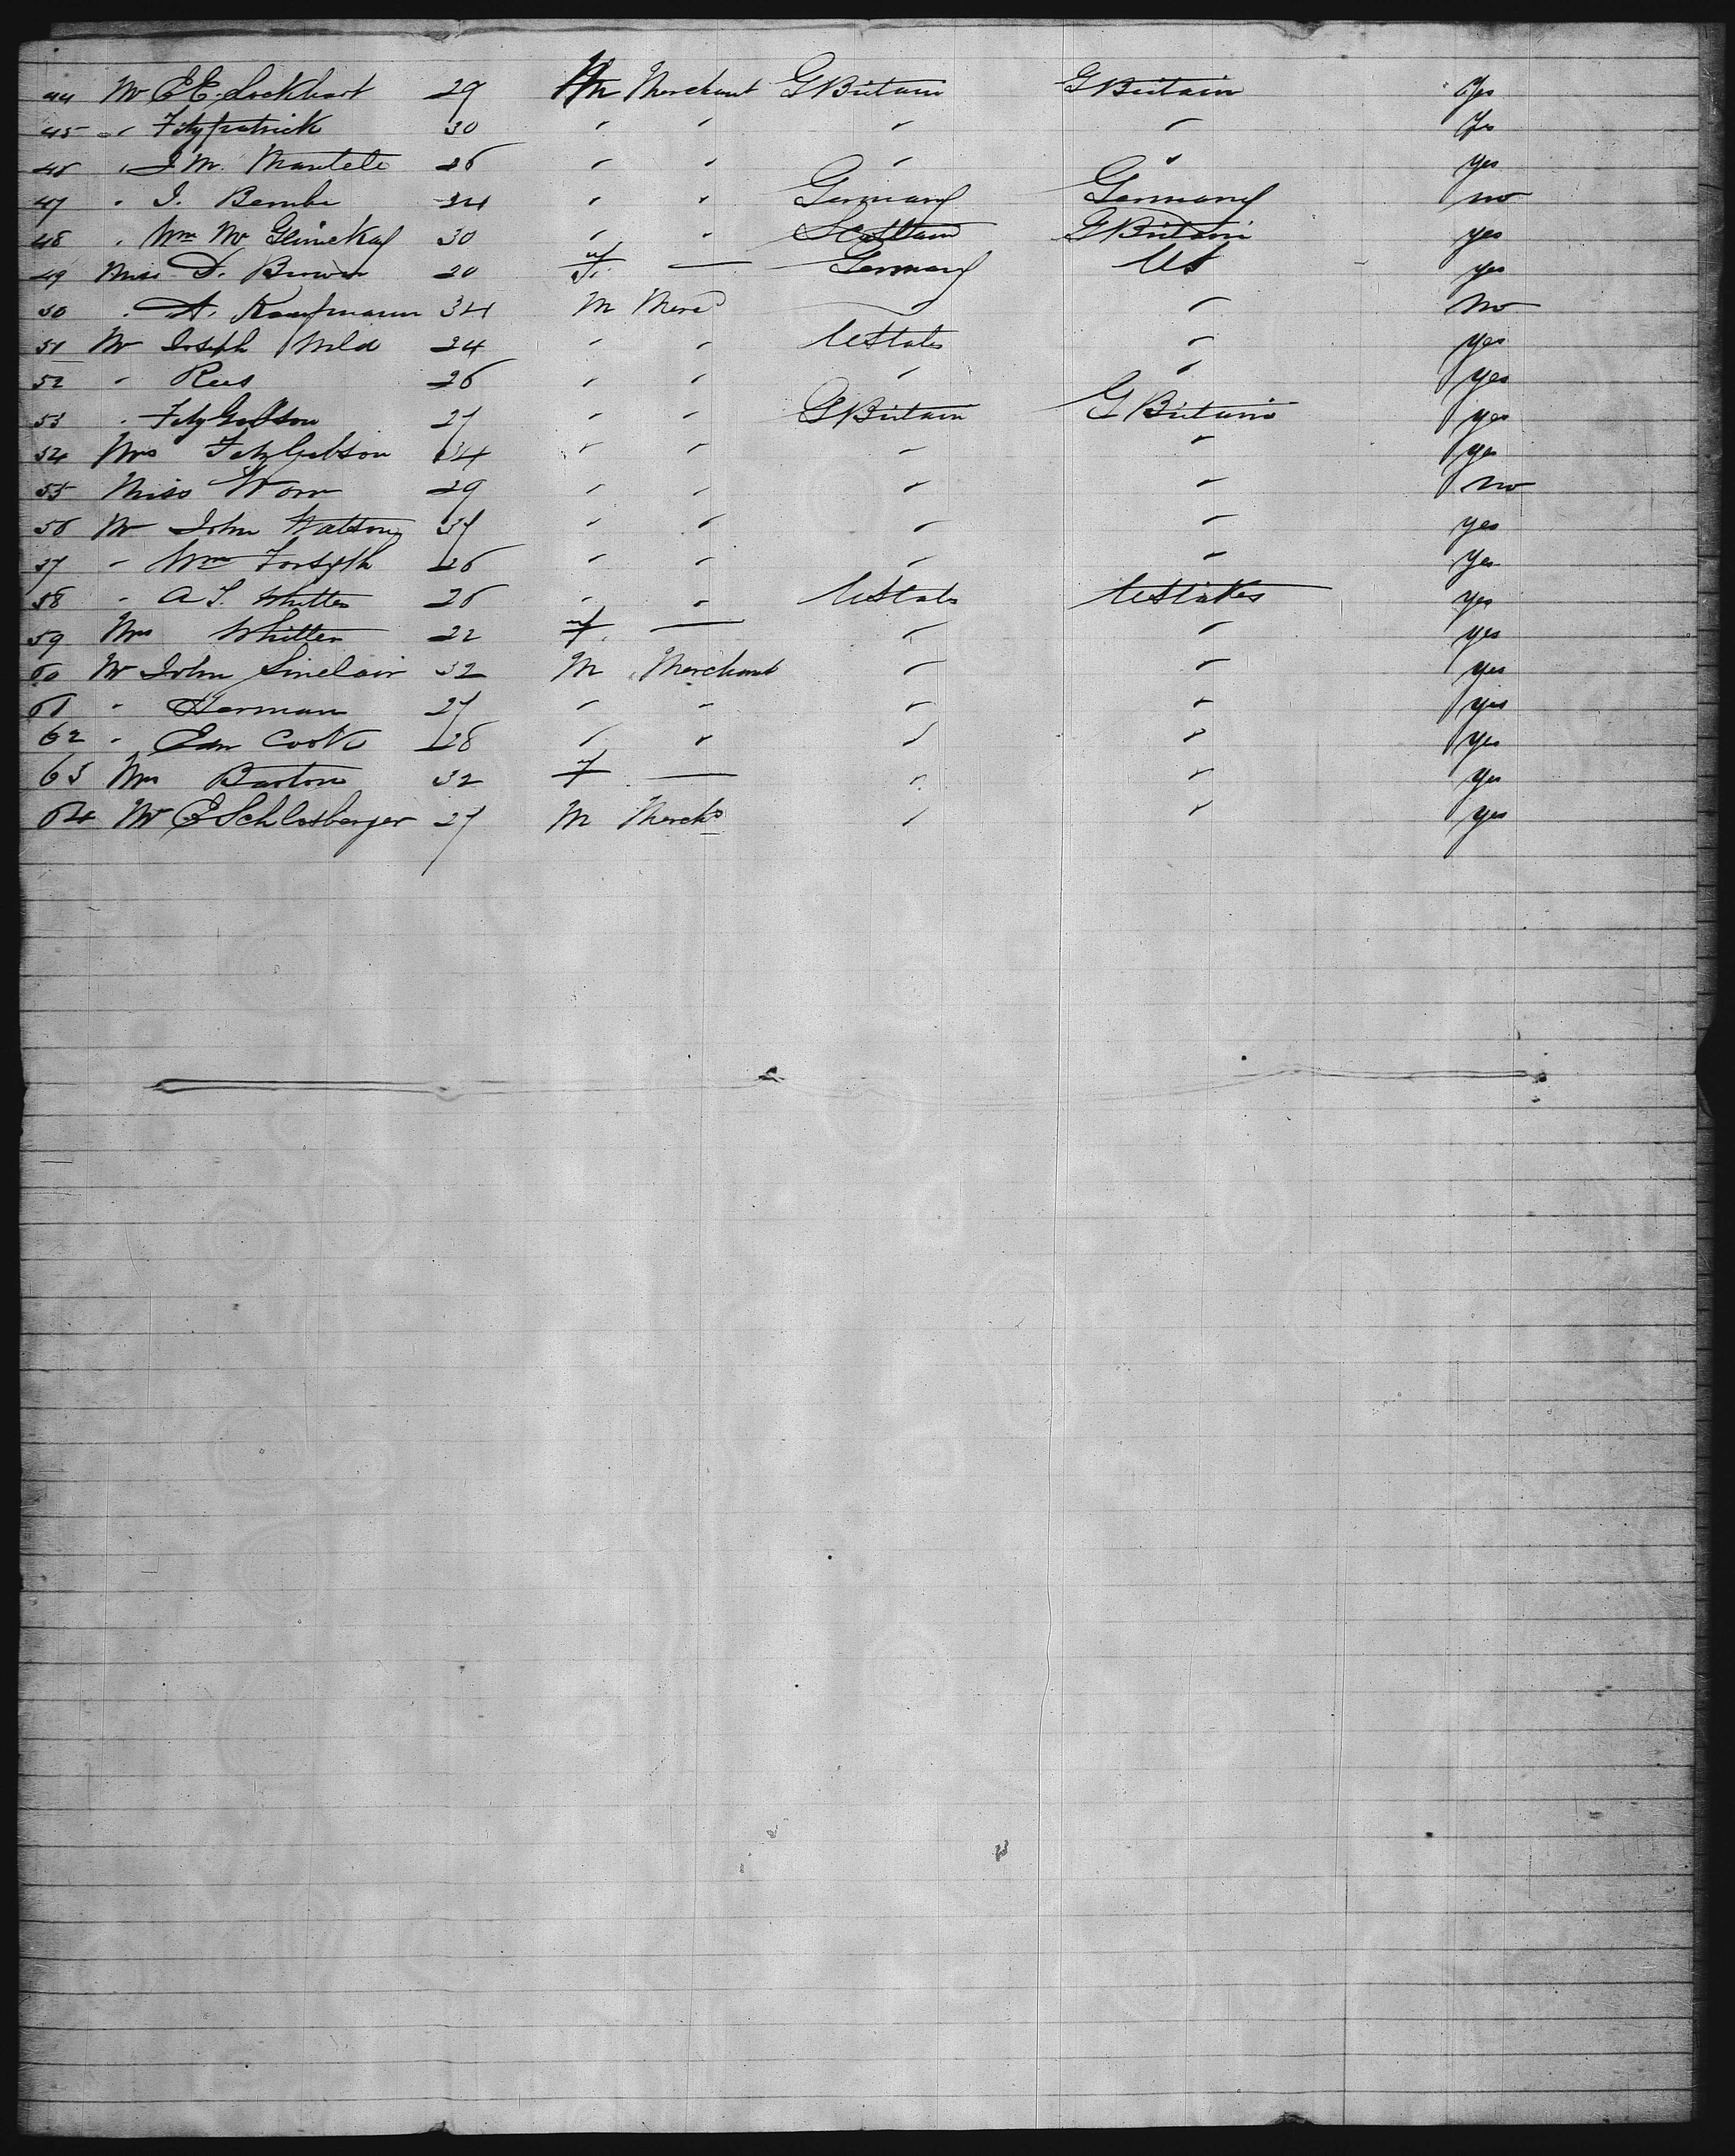 44 Mr E E Lockhart 29 M Merchant G Britain G Britain Yes
45 " Fitzpatrick 30 " " " " Yes
46 " J M. Mantele 26 " " " " yes
47 " J. Bembe 24 " " Germany Germany no
48 " Wm Mc 30 " " Scotland G Britain yes
49 Miss D. Brown 20 f — Germany US yes
50 " A. Kaufmann 34 M Merct " " no
51 Mr Joseph Mila 24 " " UStates " yes
52 " Rees 26 " " " " yes
53 " FitzGibson 27 " " G Britain G Britain yes
54 Mrs FitzGibson 34 " " " " yes
55 Miss Worr 29 " " " " no
56 Mr John Watson 37 " " " " yes
57 " Wm Forsyth 26 " " " " Yes
58 " A S. Whitten 26 " " UStates UStates yes
59 Mrs Whitten 22 f — " " yes
60 Mr John Sinclair 32 M Merchant " " yes
61 " Herman 27 " " " " yes
62 " Edw Cook 28 " " " " yes
63 Mrs Barton 32 f — " " yes
64 Mr E Schlosberger 27 M Mercht " " yes